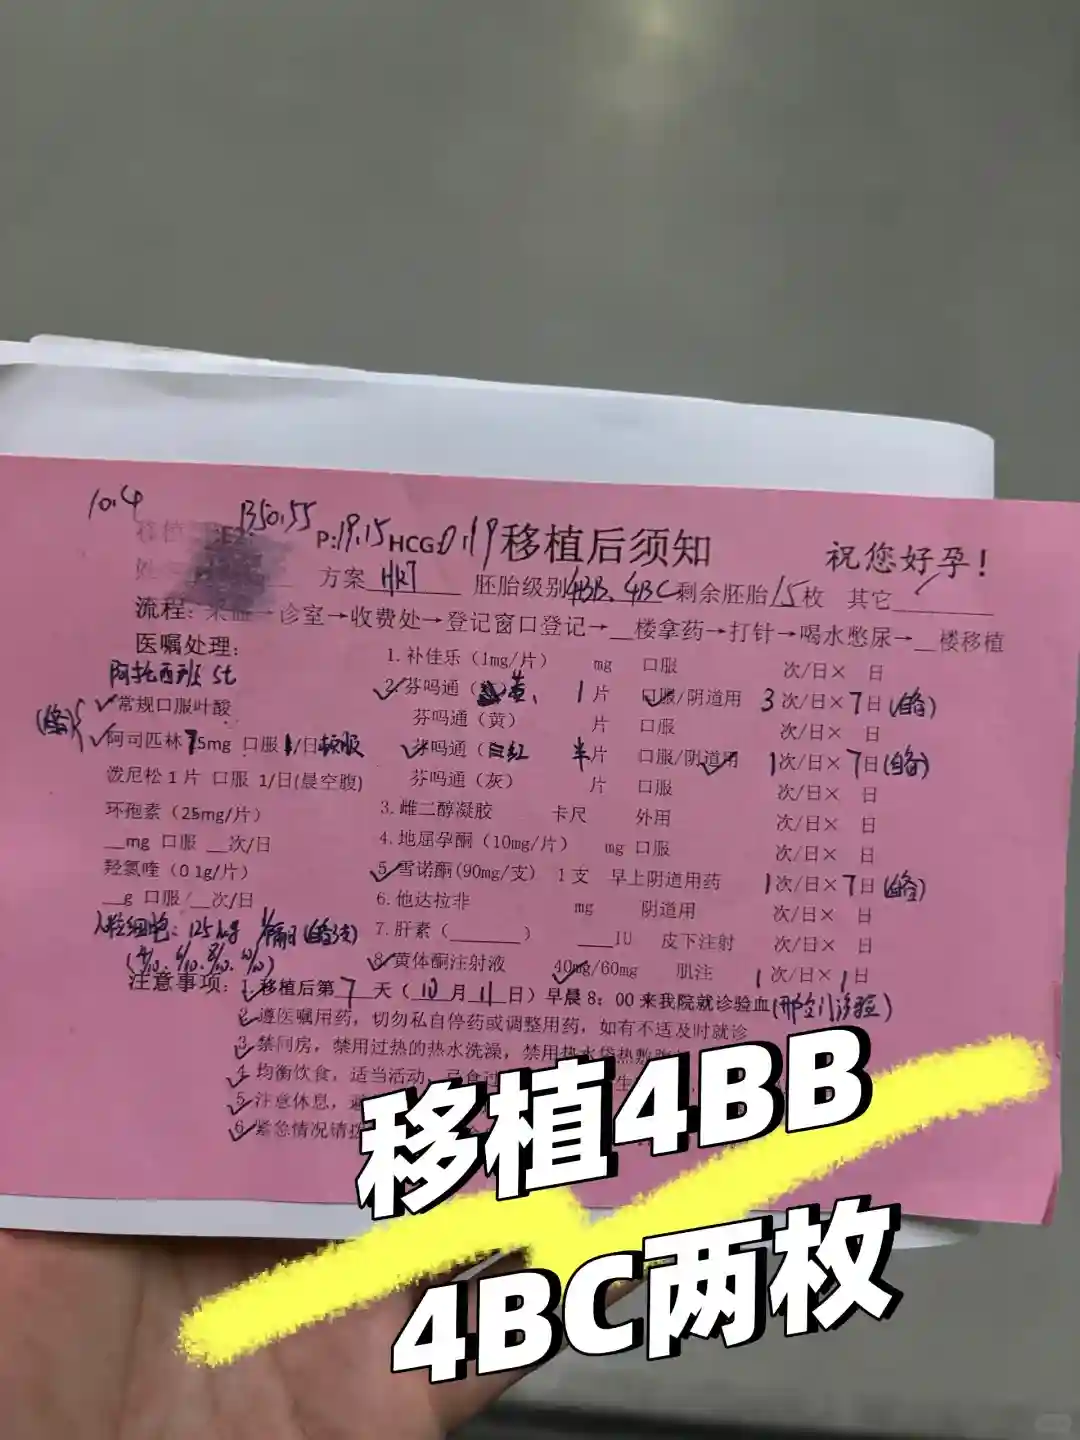 10.4
350.55
P:19.15 HCG:0.19 移植后须知
祝您好孕！
方案 HRT 胚胎级别 4BB、4BC 剩余胚胎 15 枚 其它
流程: →诊室→收费处→登记窗口登记→__楼拿药→打针→喝水憋尿→__楼移植
医嘱处理:
阿托西班 st
✓常规口服叶酸
(自备)
✓阿司匹林75mg 口服 1/日 顿服
泼尼松1片 口服 1/日(晨空腹)
环孢素（25mg/片）
__mg 口服 __次/日
羟氯喹（0 1g/片）
__g 口服/__次/日
1.补佳乐（1mg/片） mg 口服 次/日× 日
✓2.芬吗通（ 黄、 1片 口服/阴道用 3次/日×7日(自备)
芬吗通（黄） 片 口服 次/日× 日
✓芬吗通（ 红 半片 口服/阴道用 1次/日×7日(自备)
芬吗通（灰） 片 口服 次/日× 日
3.雌二醇凝胶 卡尺 外用 次/日× 日
4.地屈孕酮（10mg/片） mg 口服 次/日× 日
✓5.雪诺酮(90mg/支) 1支 早上阴道用药 1次/日×7日(自备)
6.他达拉非 mg 阴道用 次/日× 日
7.肝素（________） ____IU 皮下注射 次/日× 日
✓8.黄体酮注射液 40mg/60mg 肌注 1次/日×1日
(4/10、6/10、8/10、10/10)
注意事项: ✓1.移植后第7天（10月11日）早晨8：00来我院就诊验血
✓2.遵医嘱用药，切勿私自停药或调整用药，如有不适及时就诊
✓3.禁同房，禁用过热的热水洗澡，禁用热水袋热敷
✓4.均衡饮食，适当活动，忌食
✓5.注意休息，
✓6.紧急情况请拨
移植4BB
4BC两枚